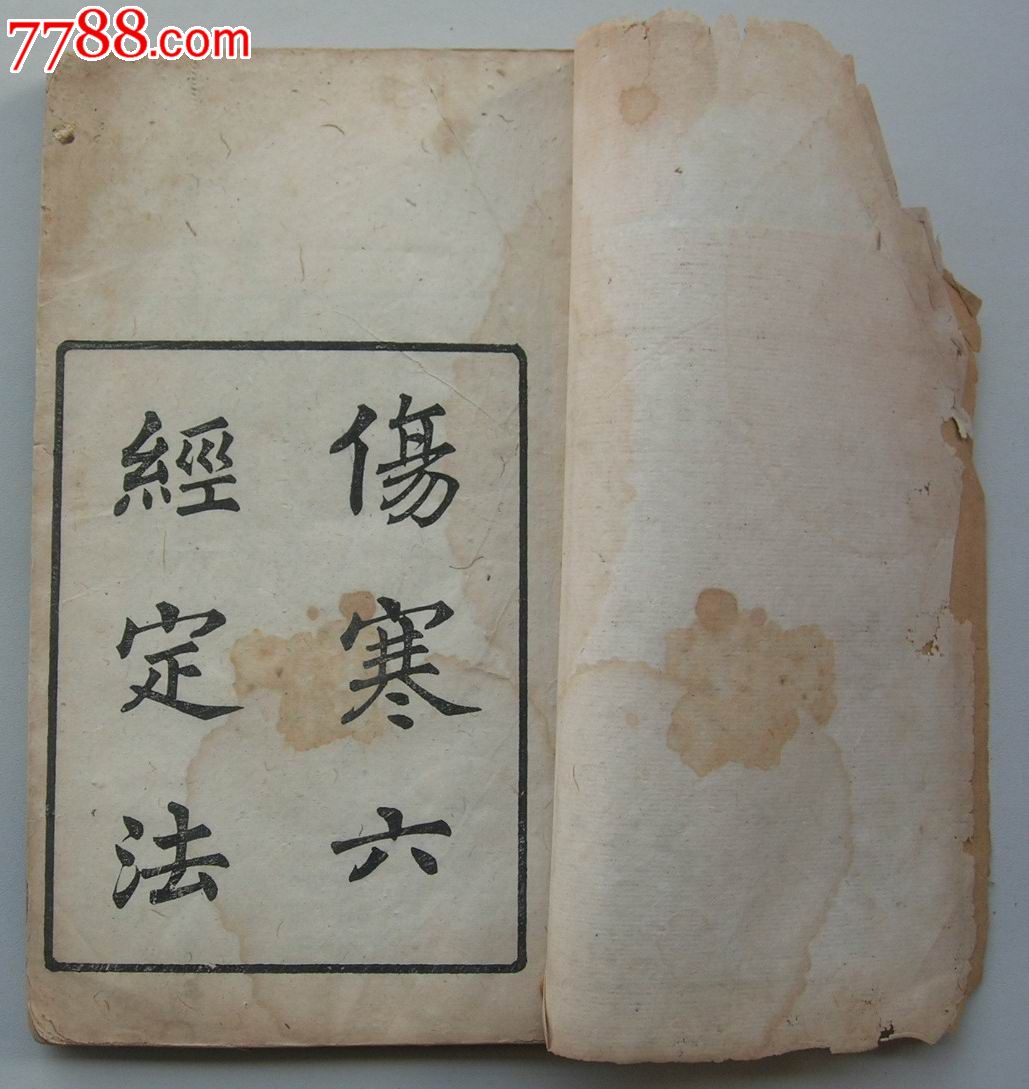 7788.com
傷寒六
經定法